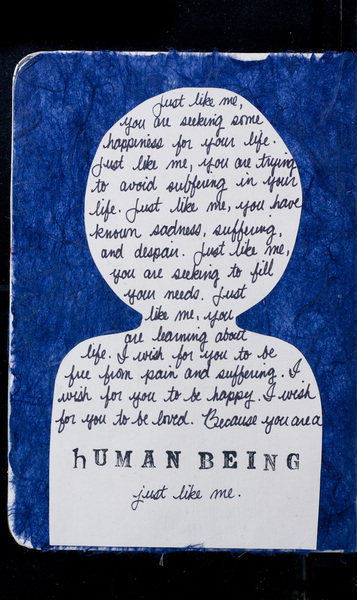 Just like me,
you are seeking some
happiness for your life.
Just like me, you are trying
to avoid suffering in your
life. Just like me, you have
known sadness, suffering,
and despair. Just like me,
you are seeking to fill
your needs. Just
like me, you
are learning about
life. I wish for you to be
free from pain and suffering. I
wish for you to be happy. I wish
for you to be loved. Because you are a
hUMAN BEING
just like me.